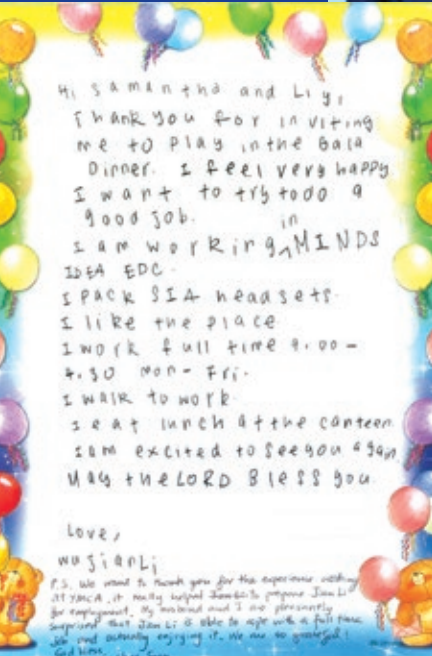 Hi Samantha and Liy,
Thank you for inviting
me to play in the Gala
Dinner. I feel very happy.
I want to try to do a
good job.
I am working in MINDS
IDEA EDC.
I pack SIA headsets.
I like the place.
I work full time 9.00 -
4.30 Mon - Fri.
I walk to work.
I eat lunch at the canteen.
I am excited to see you again.
May the LORD Bless you.
Love,
Wu Jian Li
P.S. We want to thank you for the experience
at YMCA, it really helped Jian Li to prepare Jian Li
for employment. My husband and I are pleasantly
surprised that Jian Li is able to cope with a full time
job and actually enjoying it. We are so grateful!
God bless,